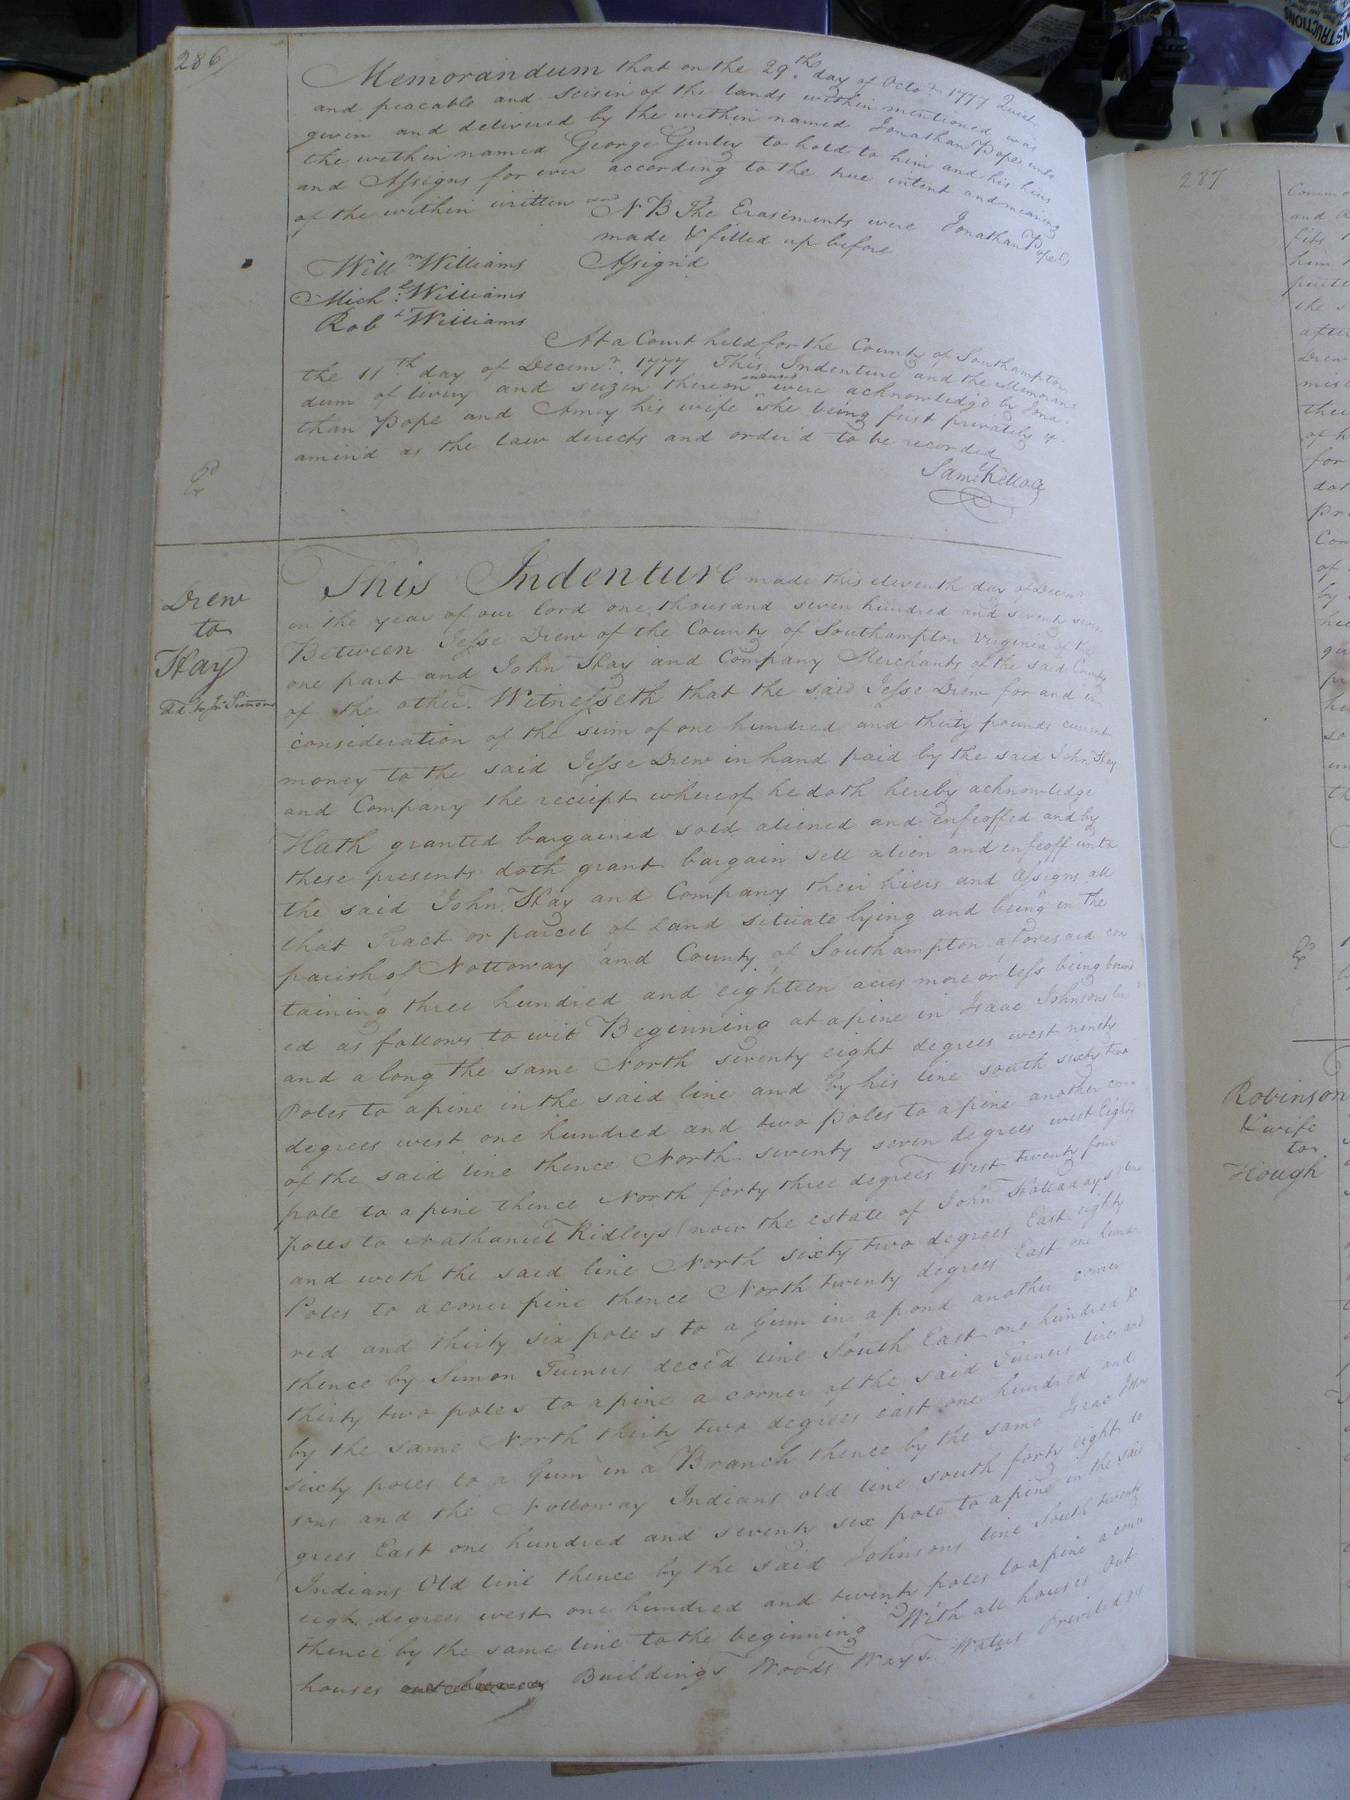 286/
Memorandum that on the 29th day of Octor 1777 Quiet
and peacable and seisen of the lands within mentioned was
given and delivered by the within named Jonathan Pope unto
the within named George Gurley to hold to him and his heirs
and Assigns for ever according to the true intent and meaning
of the within written
and NB The Erasiments were Jonathan Pope
made & filled up before
Assign'd
Willm Williams
Michl Williams
Robt Williams
At a Court held for the County of Southampton
the 11th day of Decemr 1777 This Indenture and the Memoran
dum of livery and seizen thereon were acknowledg'd by Jona-
than Pope and Amey his wife she being first privately ex-
amin'd as the law directs and order'd to be recorded
Saml Kello
Drew
to
Hay
Dd. to Jn Simmons
This Indenture made this eleventh day of Decemr
in the year of our lord one thousand seven hundred and seventy seven
Between Jesse Drew of the County of Southampton Virginia of the
one part and John Hay and Company Merchants of the said County
of the other. Witnesseth that the said Jesse Drew for and in
consideration of the sum of one hundred and thirty pounds current
money to the said Jesse Drew in hand paid by the said John Hay
and Company the receipt whereof he doth hereby acknowledge
Hath granted bargained sold aliened and enfeoffed and by
these presents doth grant bargain sell alien and enfeoff unto
the said John Hay and Company their hiers and Assigns all
that Tract or parcel of Land situate lying and being in the
parish of Nottoway and County of Southampton aforesaid con
taining three hundred and eighteen acres more or less being bound
ed as follows to wit Beginning at a pine in Isaac Johnsons line
and along the same North seventy eight degrees west ninety
Poles to a pine in the said line and by his line south sixty two
degrees west one hundred and two poles to a pine another corner
of the said line thence North seventy seven degrees west Eighty
pole to a pine thence North forty three degrees West twenty four
poles to Nathaniel Ridleys now the estate of John Holladays line
and with the said line North sixty two degrees East eighty
Poles to a corner pine thence North twenty degrees East one hund
red and thirty six poles to a Gum in a pond another corner
thence by Simon Turners deced line South East one hundred &
thirty two poles to a pine a corner of the said Turners line and
by the same North thirty two degrees east one hundred and
sixty poles to a Gum in a Branch thence by the same Isaac John
sons and the Nottoway Indians old line south forty eight de
grees East one hundred and seventy six pole to a pine in the said
Indians Old line thence by the said Johnsons line South twenty
eigh degrees west one hundred and twenty poles to a pine a corner
thence by the same line to the beginning With all houses Out
houses Buildings Woods Ways Waters Priviledges
287
Robinson
& wife
to
Hough